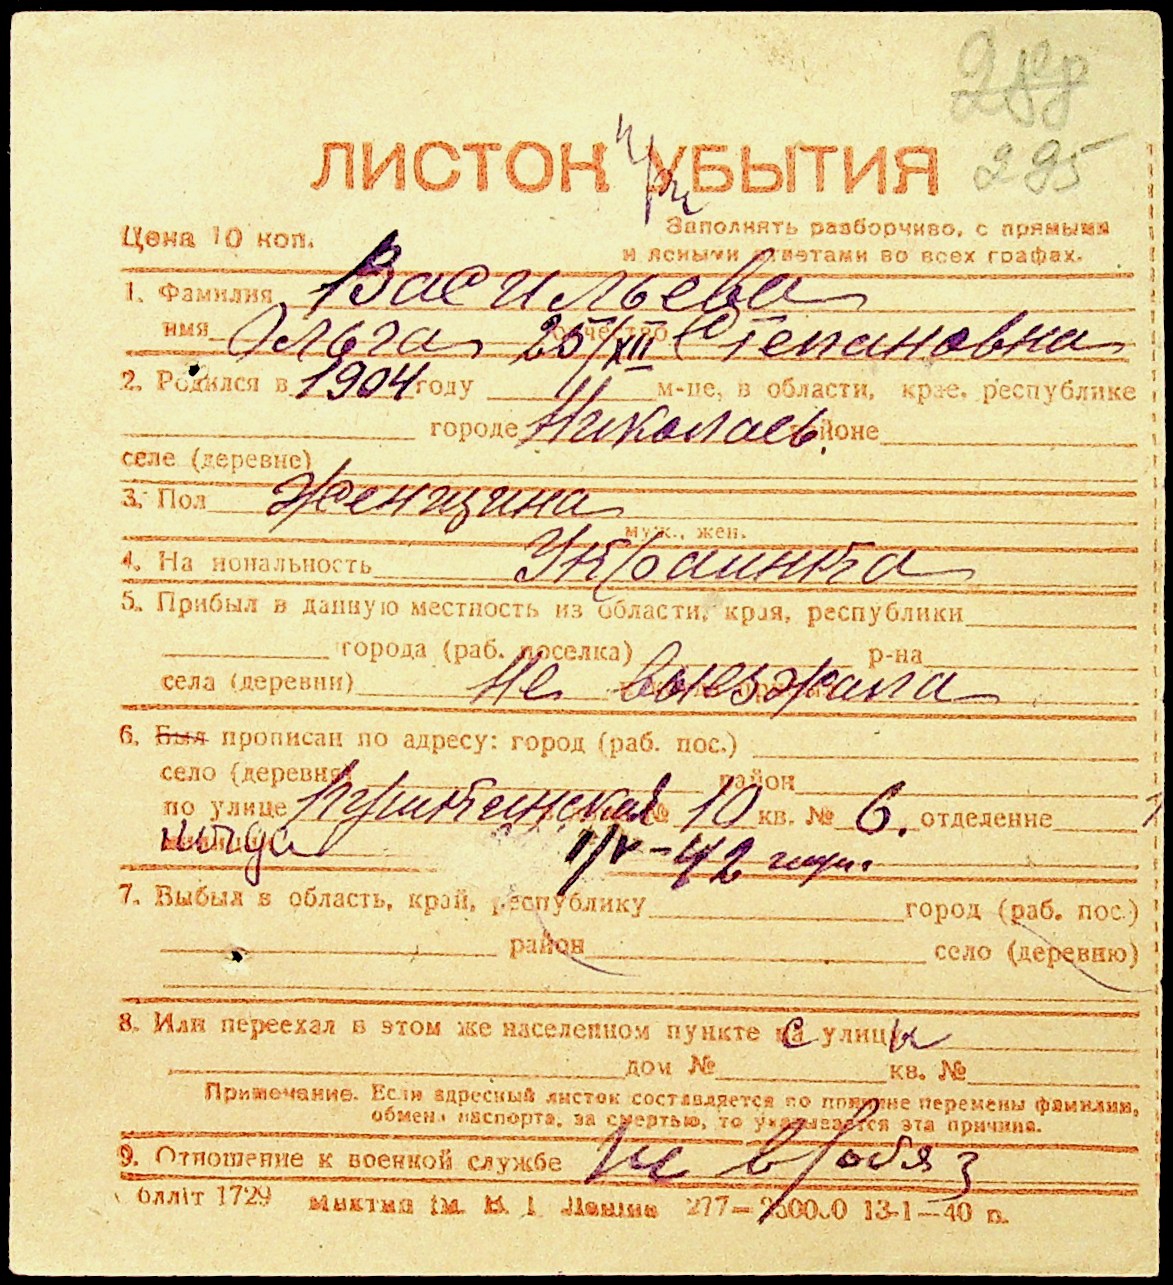 295
ЛИСТОК УБЫТИЯ
Цена 10 коп.
Заполнять разборчиво, с прямыми
и ясными ответами во всех графах.
1. Фамилия Васильева
имя Ольга 25/XII отчество Степановна
2. Родился в 1904 году м-це, в области, крае, республике
городе Николаев. районе
селе (деревне)
3. Пол Женщина
муж., жен.
4. Национальность Украинка
5. Прибыл в данную местность из области, края, республики
города (раб. поселка) р-на
села (деревни) Не выезжала
6. Был прописан по адресу: город (раб. пос.)
село (деревня) район
по улице № 10 кв. № 6. отделение
42
7. Выбыл в область, край, республику город (раб. пос.)
район село (деревню)
8. Или переехал в этом же населенном пункте с улицы
дом № кв. №
Примечание. Если адресный листок составляется по причине перемены фамилии,
обмена паспорта, за смертью, то указывается эта причина.
9. Отношение к военной службе не в/обяз
блліт 1729 ім. В. І. Леніна 277— 13-1—40 п.